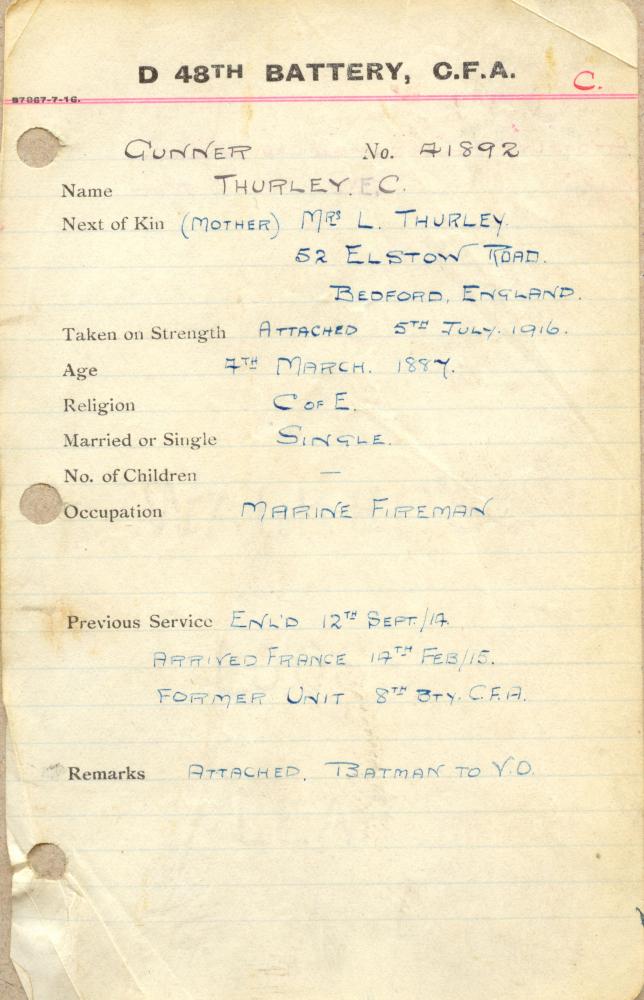 D 48TH BATTERY, C.F.A.
C.
97867-7-16.
GUNNER No. 41892
Name THURLEY. C.
Next of Kin (MOTHER) MRS L. THURLEY.
52 ELSTOW ROAD.
BEDFORD, ENGLAND.
Taken on Strength ATTACHED 5TH JULY. 1916.
Age 4TH MARCH. 1887.
Religion C OF E.
Married or Single SINGLE.
No. of Children —
Occupation MARINE FIREMAN
Previous Service ENL'D 12TH SEPT./14.
ARRIVED FRANCE 14TH FEB/15.
FORMER UNIT 8TH BTY. C.F.A.
Remarks ATTACHED. BATMAN TO V.O.